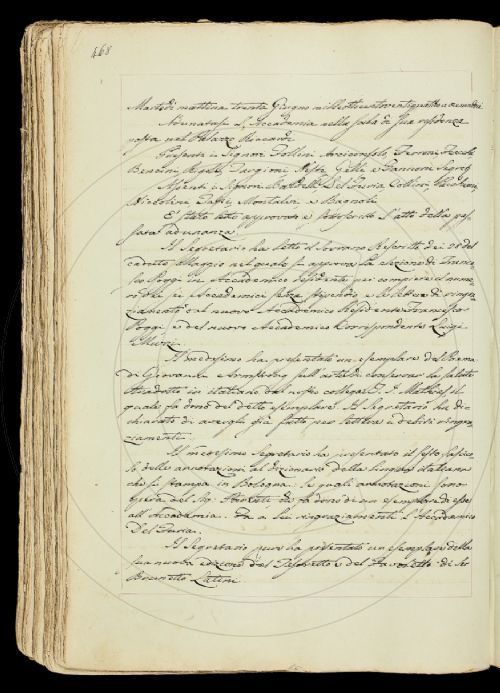 468
Martedì mattina trenta Giugno milleottocentoventiquattro a ore undici
Adunatasi l'Accademia nella sala di sua residenza
posta nel Palazzo Riccardi
Presenti i Signori Follini Arciconsolo, Ferroni, Fiacchi
Bencini, Rigoli, Targioni, Pistri, Gelli e Zannoni Segret.
Assenti i Signori Baldelli Del Furia Collini,
Niccolini Taffi, Montalvi e Bagnoli
È stato letto approvato e sottoscritto l'atto della pas-
sata adunanza.
Il Segretario ha letto il Sovrano Rescritto dei 28 del
cadetto Maggio nel quale si approva la elezione di France-
sco Poggi in Accademico residente per compiere il nume-
ro dei sei Accademici senza stipendio e le lettere di ringra-
ziamento del nuovo Accademico Residente Francesco
Poggi e del nuovo Accademico Corrispondente Luigi
Muzzi.
Il medesimo ha presentato un esemplare del Poema
di Giovanni Armstrong sull'arte di conservar la salute
tradotto in italiano dal nostro collega T. J. Mathias il
quale fa dono del detto esemplare. Il Segretario ha di-
chiarato di avergli già fatto per lettera i debiti ringra-
ziamenti.
Il medesimo Segretario ha presentato il sesto fascico-
lo delle annotazioni al dizionario della lingua italiana
che si stampa in Bologna. Le quali annotazioni sono
opera del Sig. di fa dono di un esemplare di esse
all'Accademia. Fa a lui ringraziamenti l'Accademico
Del Furia.
Il Segretario pure ha presentato un esemplare della
sua nuova edizione del Tesoretto e del Favoletto di Ser
Brunetto Latini